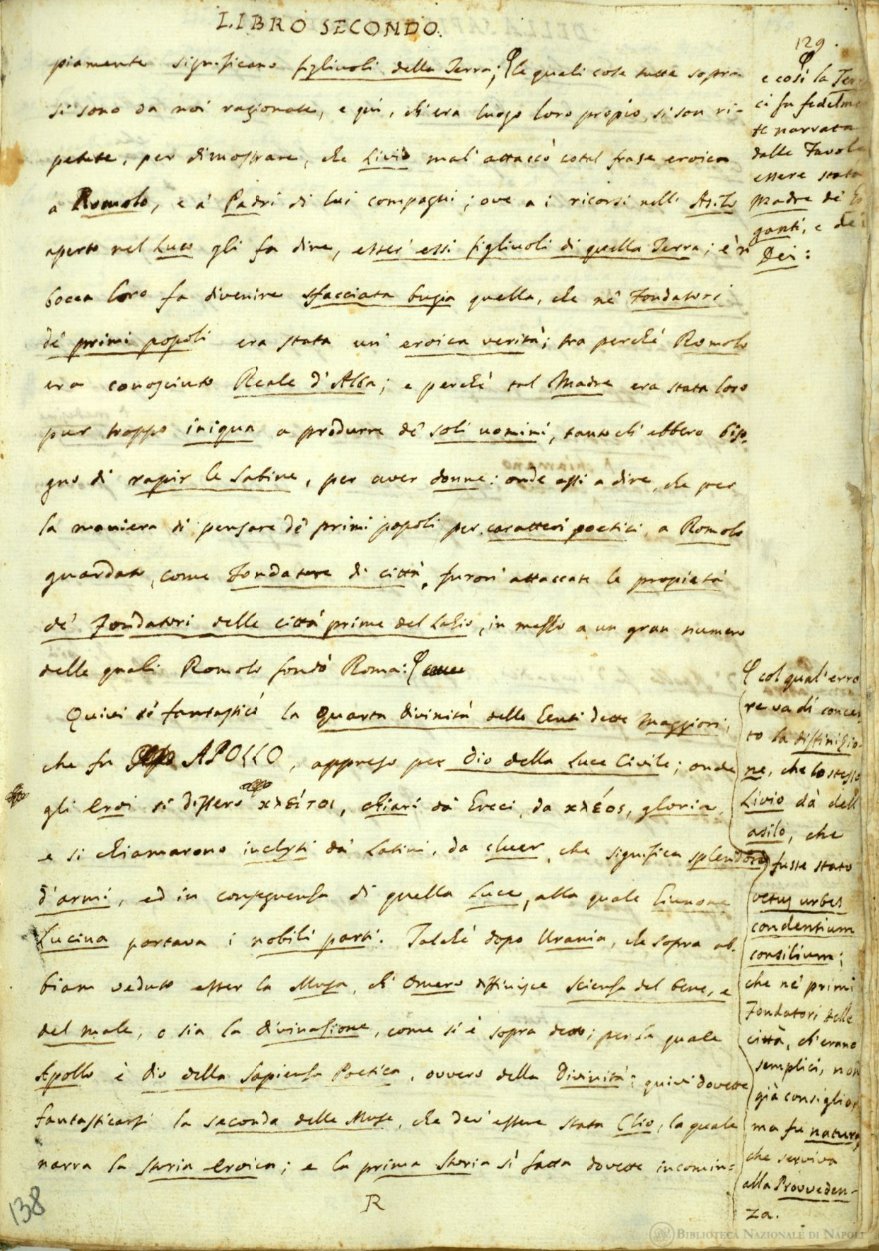 LIBRO SECONDO.
129.
piamente significano figliuoli della Terra; le quali cose tutte sopra
si sono da noi ragionate, e qui, ch'era luogo loro propio, si son ri-
petute, per dimostrare, che Livio mal' attaccò cotal frase eroica
a Romolo, e a' Padri di lui compagni; ove a i ricorsi nell' Asilo
aperto nel Luco gli fa dire, esser' essi figliuoli di quella Terra; e 'n
bocca loro fa divenire sfacciata bugia quella, che ne' Fondatori
de' primi popoli era stata un' eroica verità; tra perchè Romolo
era conosciuto Reale d'Alba; e perchè tal Madre era stata loro
pur troppo iniqua a produrre de' soli uomini, tanto ch' ebbero biso-
gno di rapir le Sabine, per aver donne: onde assi a dire, che per
la maniera di pensare de' primi popoli per caratteri poetici, a Romolo
guardato, come Fondatore di città, furon' attaccate le propietà
de' Fondatori delle città prime del Lazio, in mezzo a un gran numero
delle quali Romolo fondò Roma:
Quivi si fantasticò la quarta divinità delle Genti dette Maggiori,
che fu APOLLO, appreso per Dio della Luce Civile; onde
gli Eroi si dissero κλεῖτος, chiari da' Greci, da κλέος, gloria,
e si chiamarono inclyti da' Latini, da cluer, che significa splendore
d'armi, ed in conseguenza di quella Luce, alla quale Giunone
Lucina portava i nobili parti. Talchè dopo Urania, che sopra ab-
biam veduto esser la Musa, ch' Omero diffinisce scienza del bene, e
del male, o sia la divinazione, come si è sopra detto; per la quale
Apollo è Dio della Sapienza Poetica, ovvero della Divinità: quivi dovette
fantasticarsi la seconda delle Muse, che dev' essere stata Clio, la quale
narra la storia eroica; e la prima storia sì fatta dovette incomin-
R
138
e così la Ter-
ci fu fedelmen-
te narrata
dalle Favole
essere stata
Madre de' Gi-
ganti, e de'
Dei:
col qual' erro-
re va di concer-
to la diffinizio-
ne, che lo stesso
Livio dà dell'
asilo, che
fusse stato
vetus urbes
condentium
consilium;
che ne' primi
Fondatori delle
città, ch' erano
semplici, non
già consiglio,
ma fu natura,
che serviva
alla Provveden-
za.
BIBLIOTECA NAZIONALE DI NAPOLI